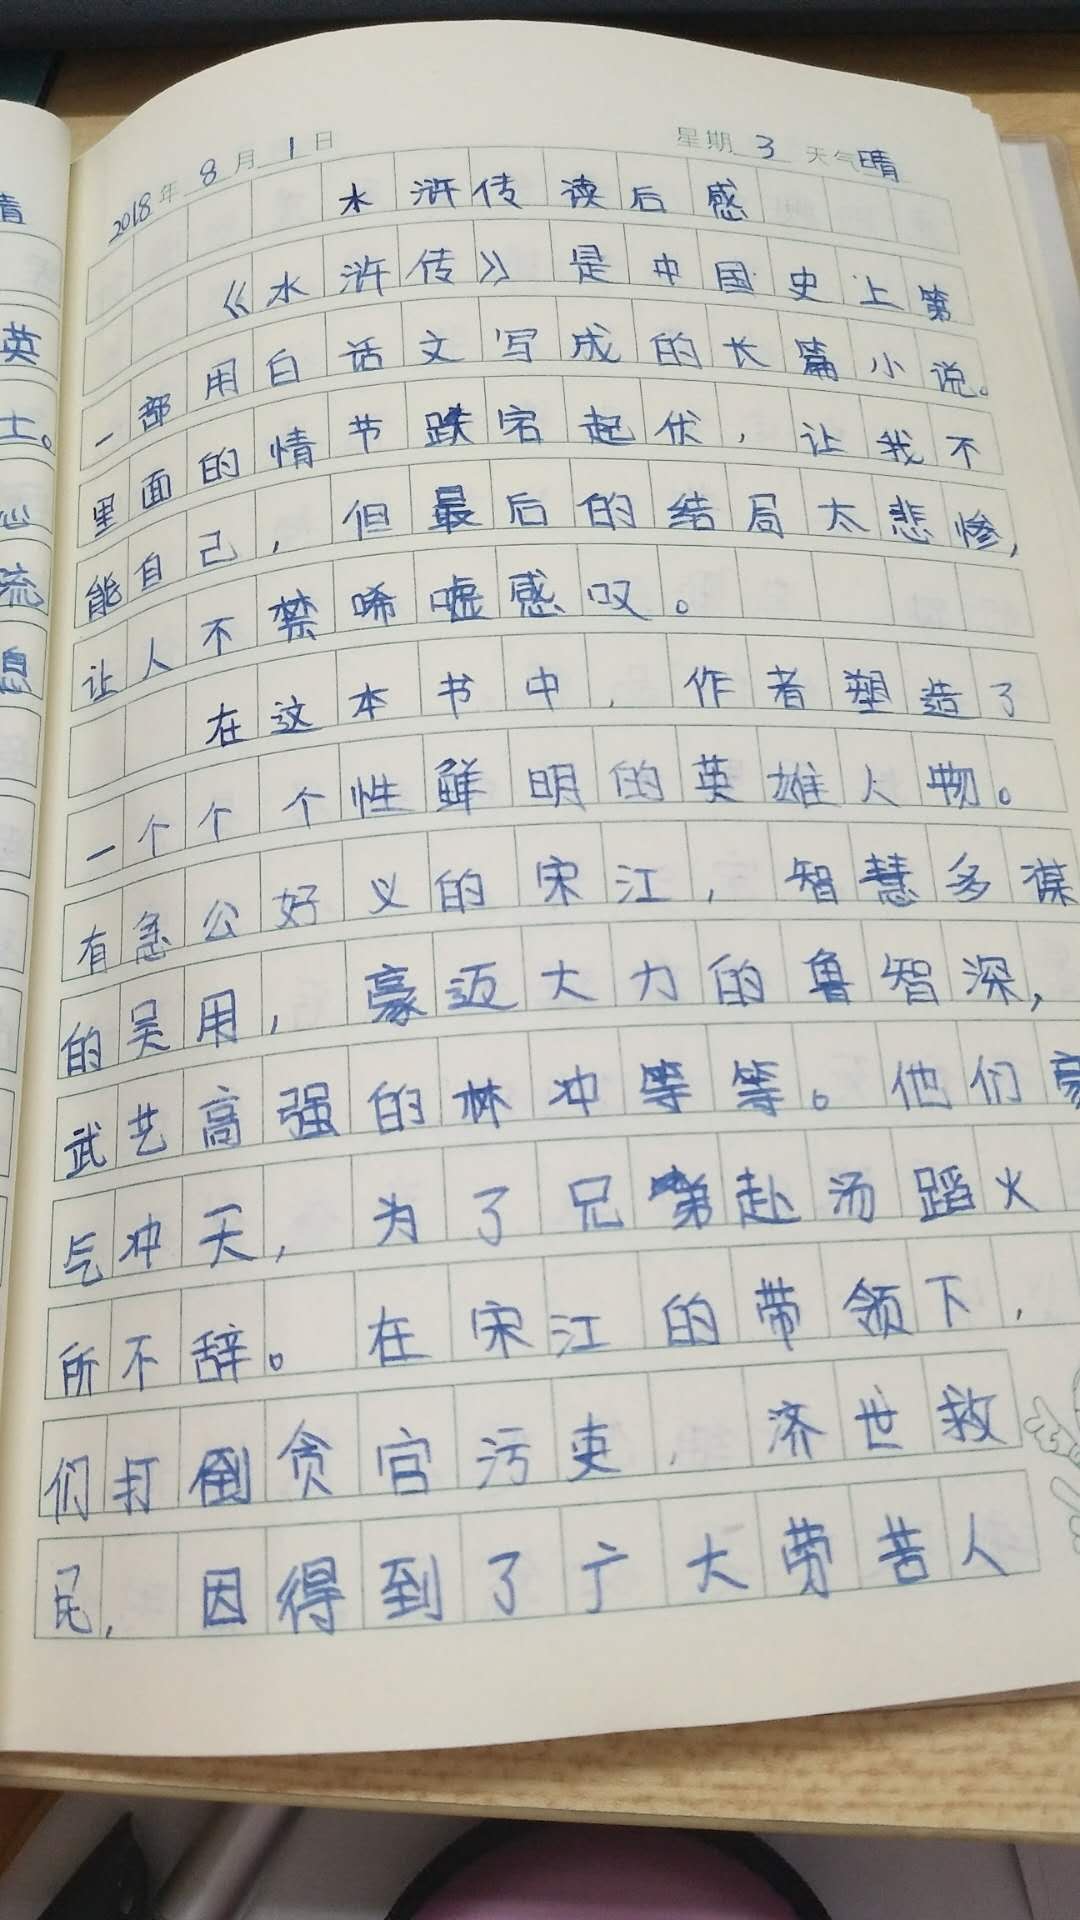 2018年 8月 1日 星期 3 天气晴
水浒传读后感
《水浒传》是中国史上第
一部用白话文写成的长篇小说。
里面的情节跌宕起伏，让我不
能自己，但最后的结局太悲惨，
让人不禁唏嘘感叹。
在这本书中，作者塑造了
一个个个性鲜明的英雄人物。
有急公好义的宋江，智慧多谋
的吴用，豪迈大力的鲁智深，
武艺高强的林冲等等。他们豪
气冲天，为了兄弟赴汤蹈火
所不辞。在宋江的带领下，
们打倒贪官污吏，济世救
民，因得到了广大劳苦人
英
士。
流
息